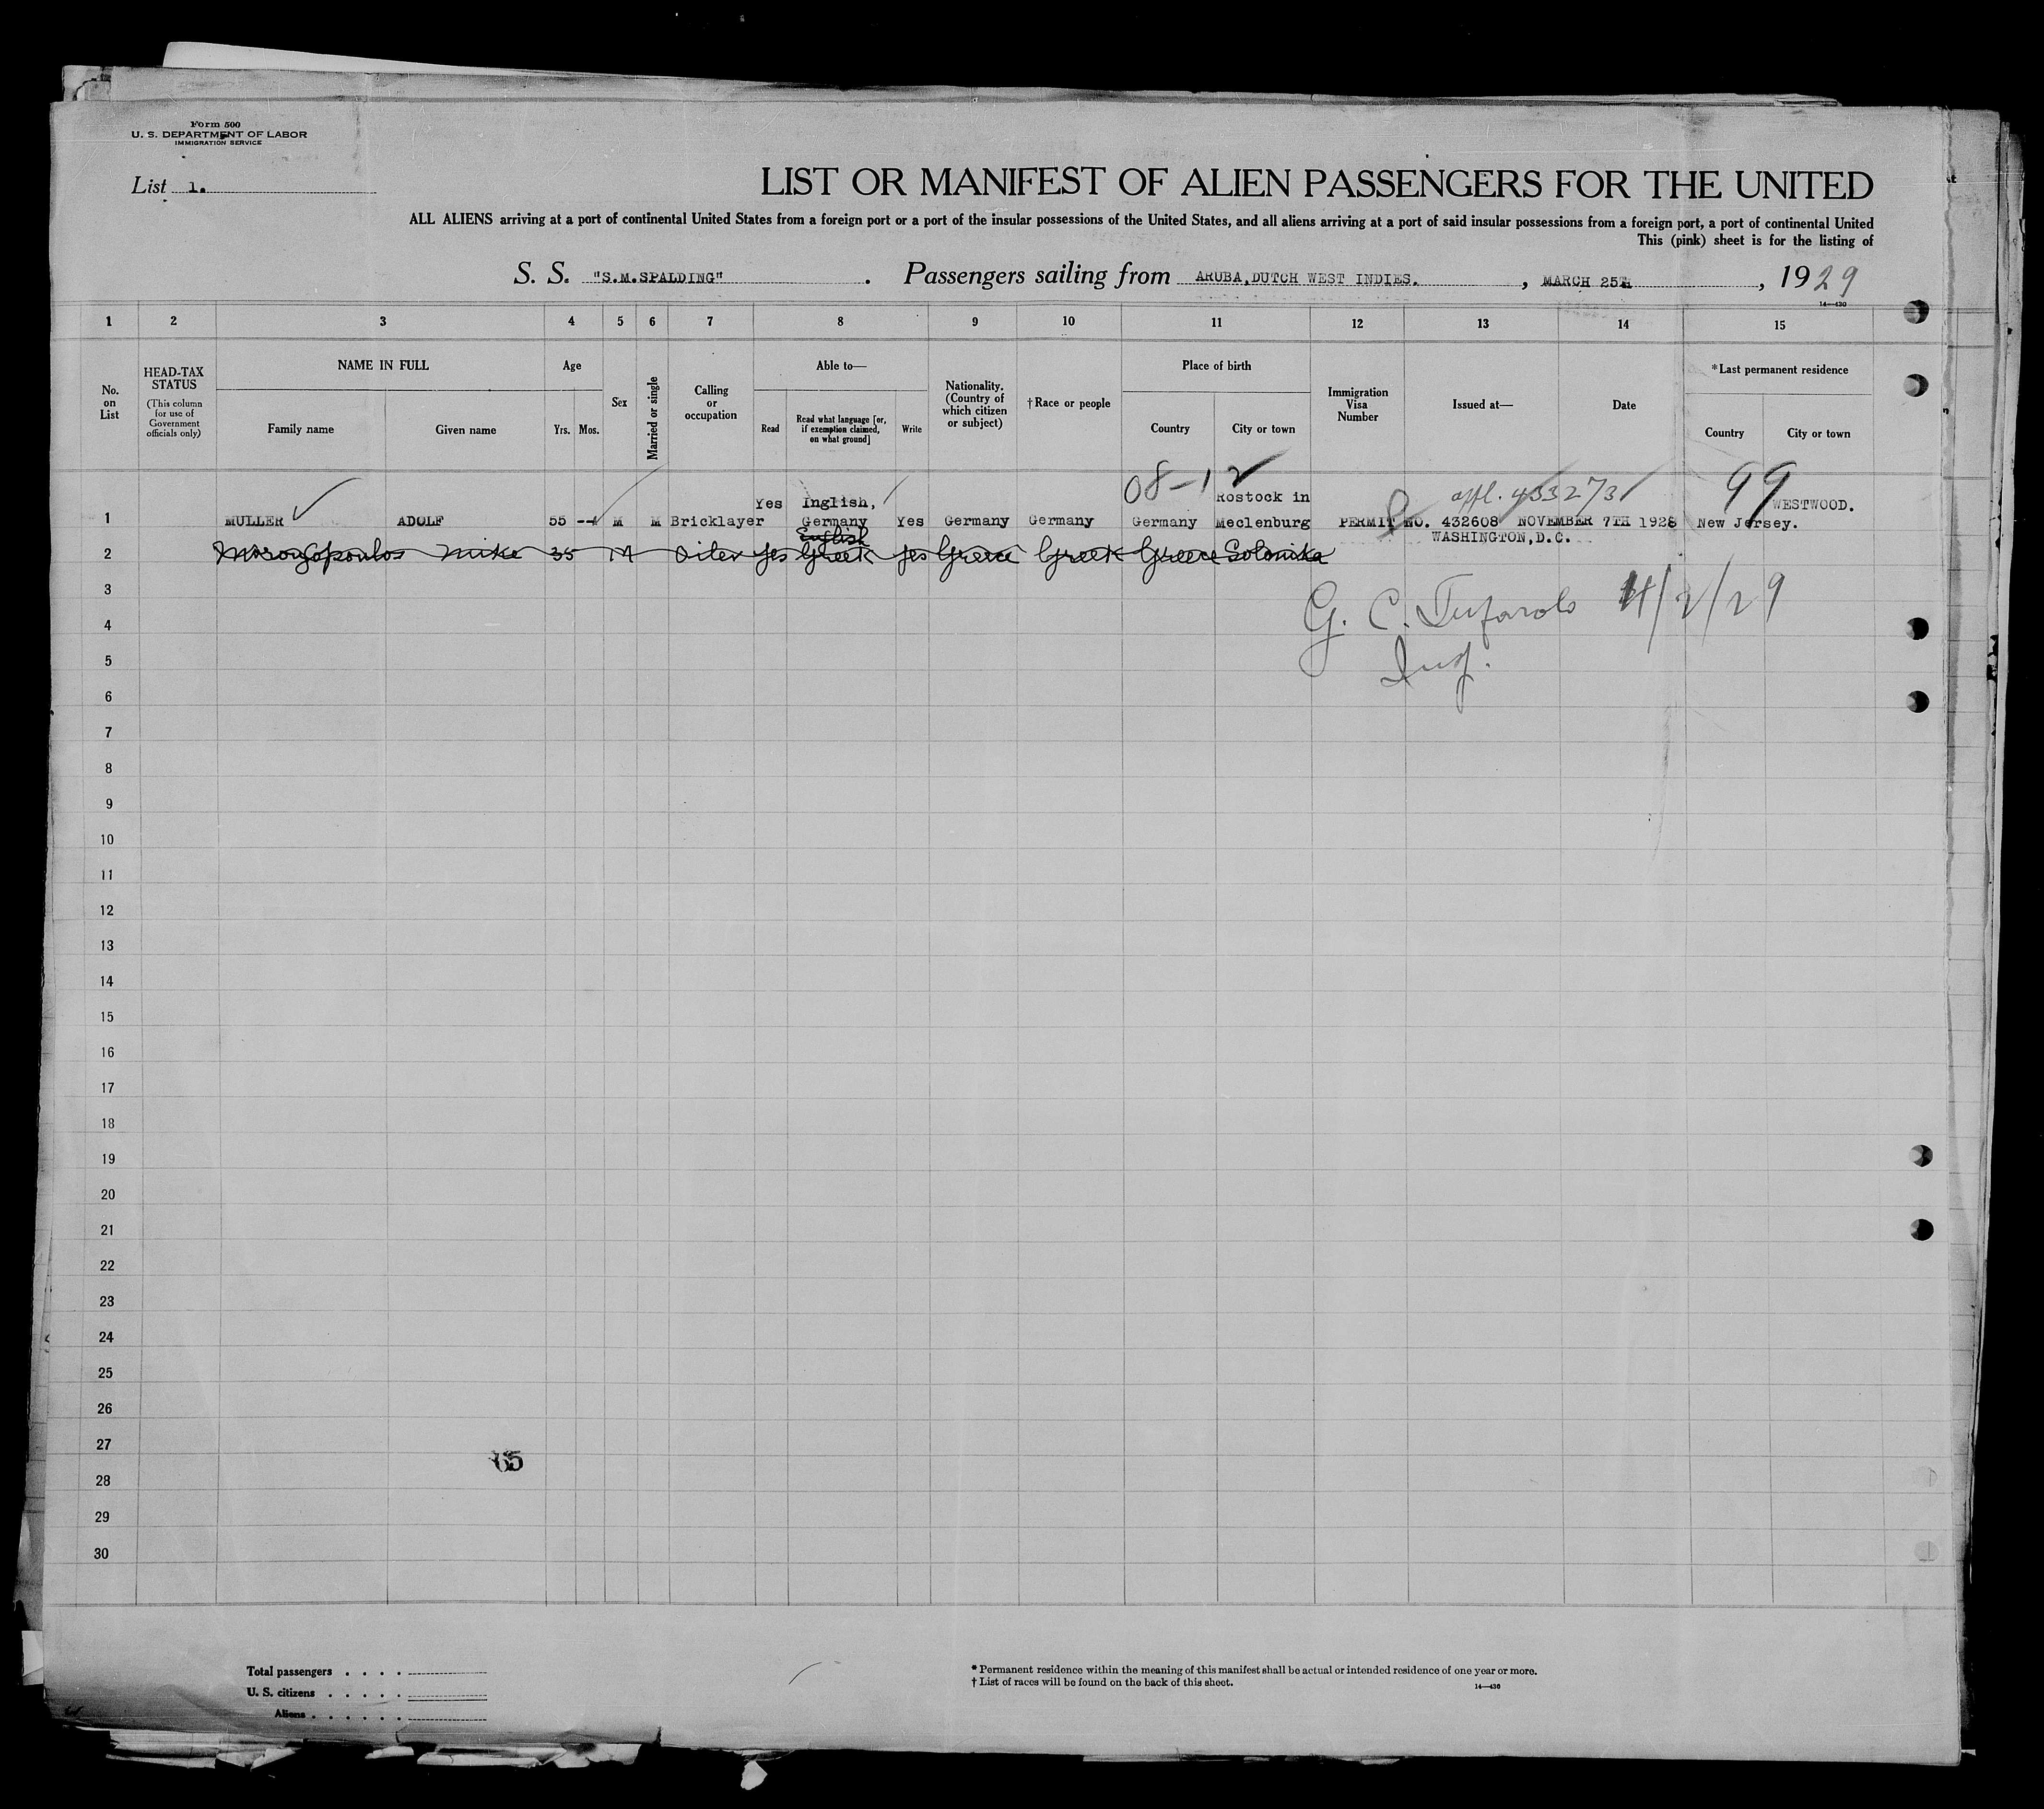 Form 500
U. S. DEPARTMENT OF LABOR
IMMIGRATION SERVICE
List 1.
LIST OR MANIFEST OF ALIEN PASSENGERS FOR THE UNITED
ALL ALIENS arriving at a port of continental United States from a foreign port or a port of the insular possessions of the United States, and all aliens arriving at a port of said insular possessions from a foreign port, a port of continental United
This (pink) sheet is for the listing of
S. S. "S.M.SPALDING" . Passengers sailing from ARUBA,DUTCH WEST INDIES. , MARCH 25TH , 1929
14—430
1 2 3 4 5 6 7 8 9 10 11 12 13 14 15
No. on List
HEAD-TAX STATUS (This column for use of Government officials only)
NAME IN FULL
Family name Given name
Age
Yrs. Mos.
Sex
Married or single
Calling or occupation
Able to—
Read
Read what language [or, if exemption claimed, on what ground]
Write
Nationality. (Country of which citizen or subject)
†Race or people
Place of birth
Country City or town
Immigration Visa Number
Issued at—
Date
*Last permanent residence
Country City or town
08-12 appl. 433273 99
Yes Inglish, Rostock in WESTWOOD.
1 MULLER ADOLF 55 -- M M Bricklayer Germany Yes Germany Germany Germany Meclenburg PERMIT NO. 432608 NOVEMBER 7TH 1928 New Jersey.
English WASHINGTON,D.C.
2 Mike 35 M Oiler Yes Greek Yes Greece Greek Greece Solonika
3
G. C. 4/2/29
4
5
6
7
8
9
10
11
12
13
14
15
16
17
18
19
20
21
22
23
24
25
26
27
65
28
29
30
Total passengers . . . .
U. S. citizens . . . . .
Aliens . . . . . .
* Permanent residence within the meaning of this manifest shall be actual or intended residence of one year or more.
† List of races will be found on the back of this sheet.
14—430